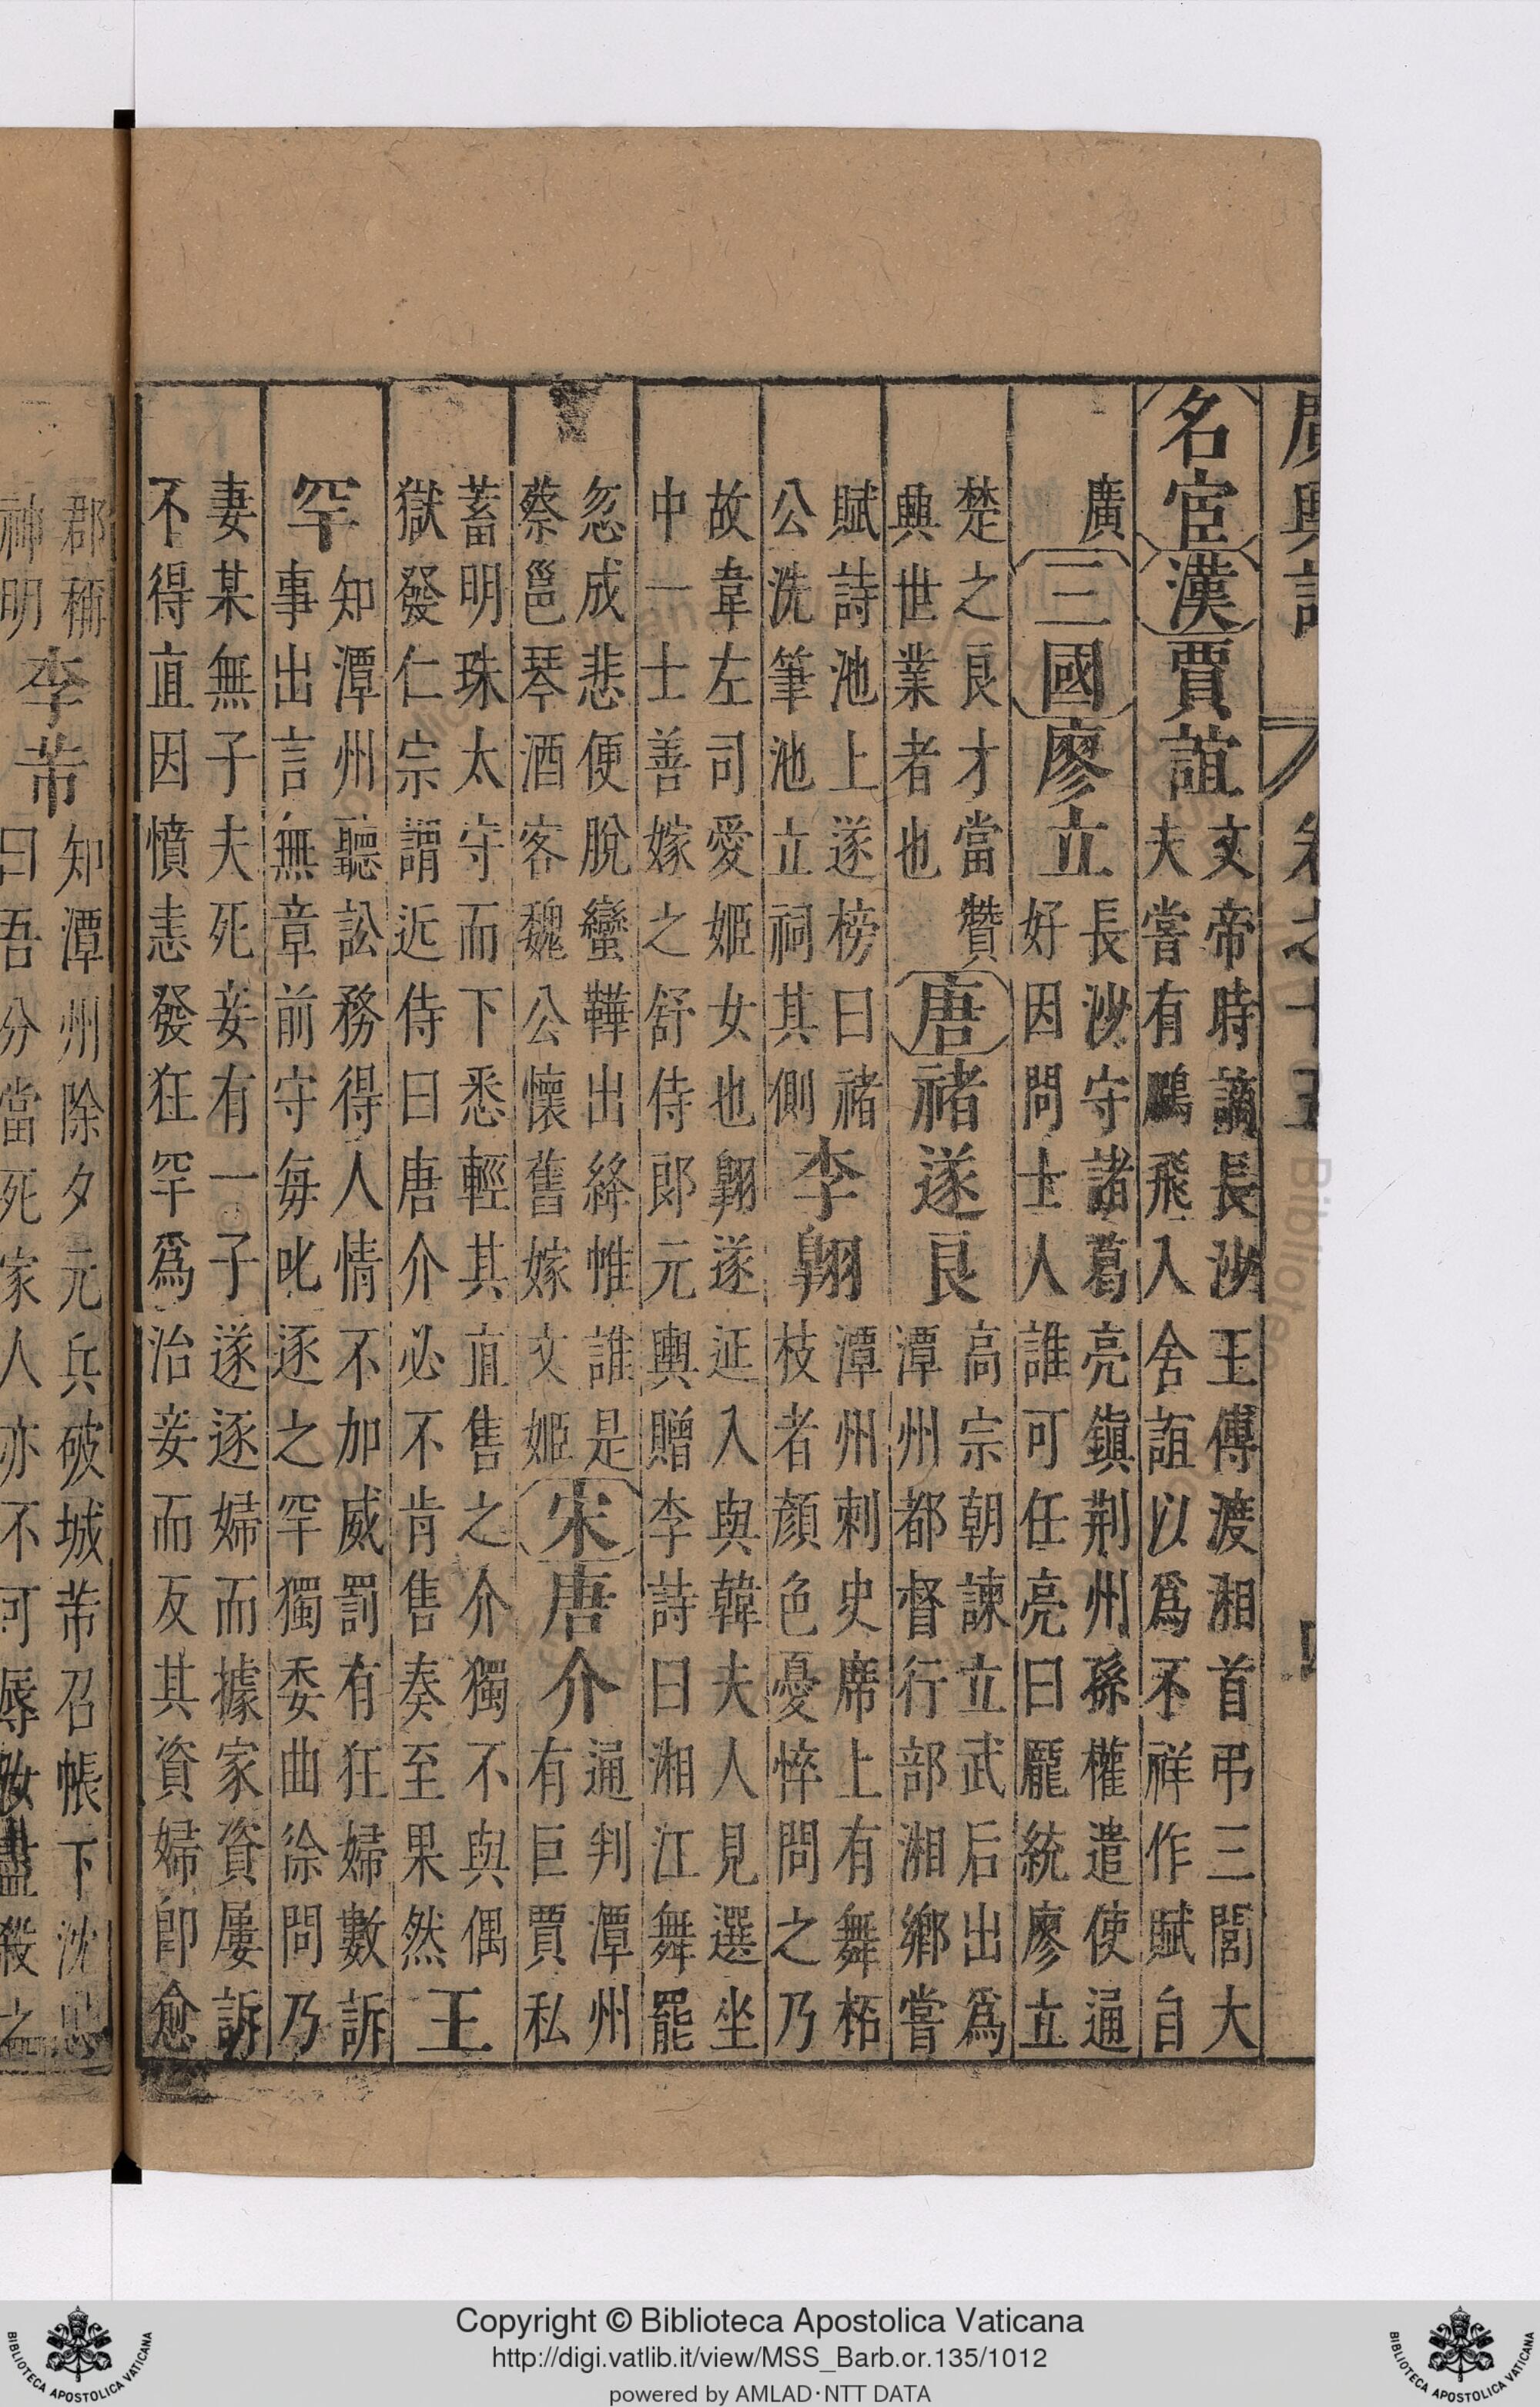 廣輿記 卷之十五 四
名宦 漢 賈誼 文帝時謫長沙王傅渡湘首弔三閭大
夫嘗有鵩飛入舍誼以爲不祥作賦自
廣 三國 廖立 長沙守諸葛亮鎮荆州孫權遣使通
好因問士人誰可任亮曰龐統廖立
楚之良才當贊
興世業者也 唐 禇遂良 高宗朝諫立武后出爲
潭州都督行部湘鄉嘗
賦詩池上遂榜曰禇
公洗筆池立祠其側 李翺 潭州刺史席上有舞柘
枝者顏色憂悴問之乃
故韋左司愛姬女也翺遂延入與韓夫人見選坐
中一士善嫁之舒侍郎元輿贈李詩曰湘江舞罷
忽成悲便脫蠻鞾出絳帷誰是
蔡邕琴酒客魏公懷舊嫁文姬 宋 唐介 通判潭州
有巨賈私
蓄明珠太守而下悉輕其直售之介獨不與偶
獄發仁宗謂近侍曰唐介必不肯售奏至果然 王
罕 知潭州聽訟務得人情不加威罰有狂婦數訴
事出言無章前守每叱逐之罕獨委曲徐問乃
妻某無子夫死妾有一子遂逐婦而據家資屢訴
不得直因憤恚發狂罕爲治妾而反其資婦卽愈
郡稱
神明 李芾 知潭州除夕元兵破城芾召帳下沈忠
曰吾分當死家人亦不可辱汝盡殺之
Copyright © Biblioteca Apostolica Vaticana
http://digi.vatlib.it/view/MSS_Barb.or.135/1012
powered by AMLAD·NTT DATA
BIBLIOTECA APOSTOLICA VATICANA
BIBLIOTECA APOSTOLICA VATICANA